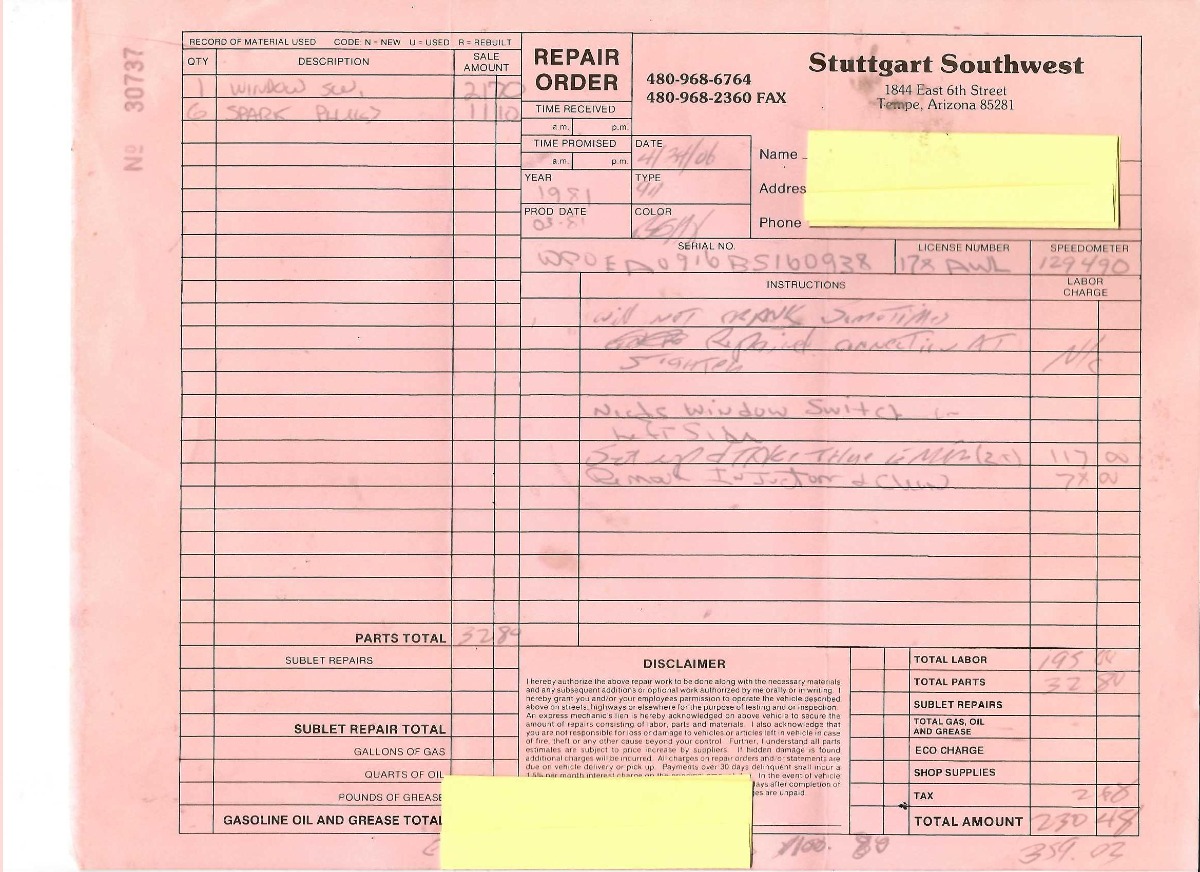 Nº 30737
RECORD OF MATERIAL USED CODE: N = NEW U = USED R = REBUILT
QTY DESCRIPTION SALE AMOUNT
1 WINDOW SW. 21 70
6 SPARK PLUGS 11 10
PARTS TOTAL 32 80
SUBLET REPAIRS
SUBLET REPAIR TOTAL
GALLONS OF GAS
QUARTS OF OIL
POUNDS OF GREASE
GASOLINE OIL AND GREASE TOTAL
REPAIR ORDER
480-968-6764
480-968-2360 FAX
Stuttgart Southwest
1844 East 6th Street
Tempe, Arizona 85281
TIME RECEIVED
a.m. p.m.
TIME PROMISED
a.m. p.m.
DATE
YEAR 1981
TYPE 911
PROD DATE 03-81
COLOR
Name
Addres
Phone
SERIAL NO. WP0EA0916BS160938
LICENSE NUMBER AWL
SPEEDOMETER 129490
INSTRUCTIONS
LABOR CHARGE
Will NOT CRANK Sometimes
Repaired connection AT N/C
Needs Window Switch
Left Side
Set up & 117 00
Injectors & Clean 78 00
DISCLAIMER
I hereby authorize the above repair work to be done along with the necessary materials
and any subsequent additions or optional work authorized by me orally or in writing. I
hereby grant you and/or your employees permission to operate the vehicle described
above on streets, highways or elsewhere for the purpose of testing and/or inspection.
An express mechanic's lien is hereby acknowledged on above vehicle to secure the
amount of repairs consisting of labor, parts and materials. I also acknowledge that
you are not responsible for loss or damage to vehicles or articles left in vehicle in case
of fire, theft or any other cause beyond your control. Further, I understand all parts
estimates are subject to price increase by suppliers. If hidden damage is found
additional charges will be incurred. All charges on repair orders and/or statements are
due on vehicle delivery or pick up. Payments over 30 days delinquent shall incur a
1.5% per month interest charge on the In the event of vehicle
days after completion or
ges are unpaid.
TOTAL LABOR 195 00
TOTAL PARTS 32 80
SUBLET REPAIRS
TOTAL GAS, OIL AND GREASE
ECO CHARGE
SHOP SUPPLIES
TAX 2 68
TOTAL AMOUNT 230 48
359.02